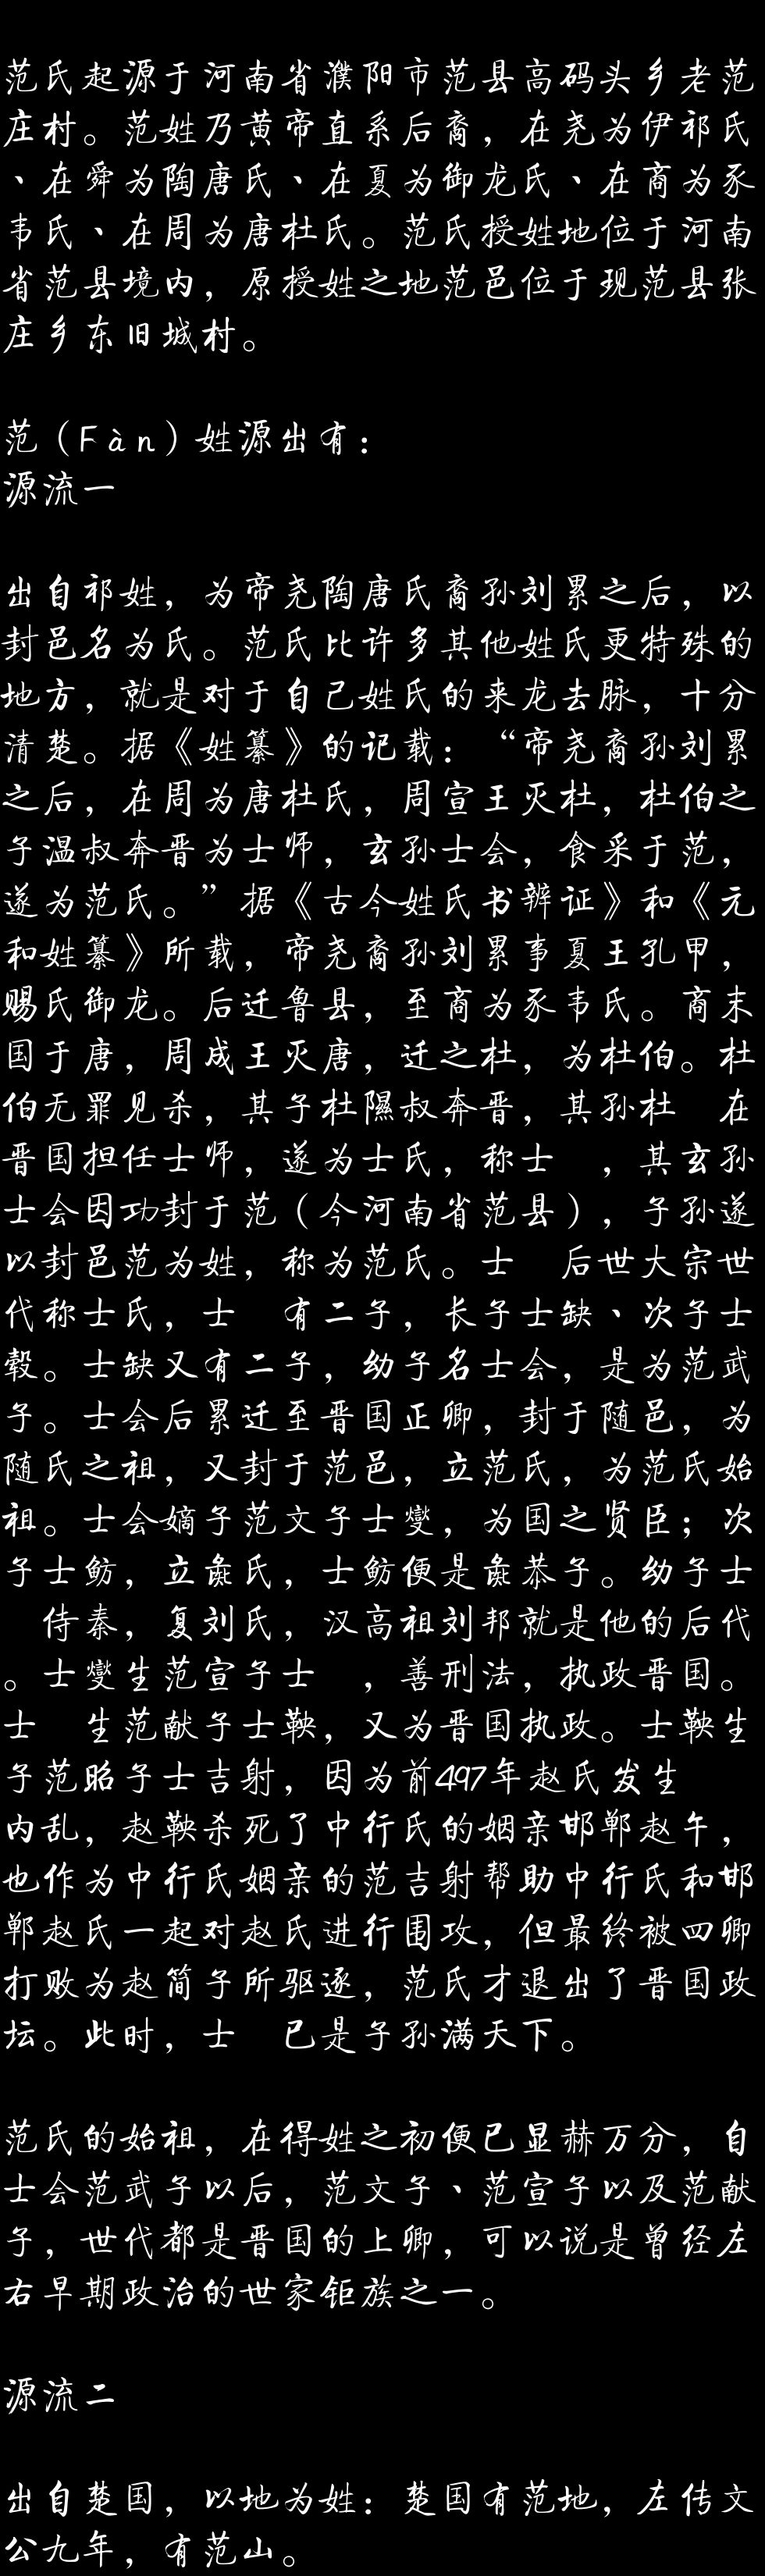 范氏起源于河南省濮阳市范县高码头乡老范
庄村。范姓乃黄帝直系后裔，在尧为伊祁氏
、在舜为陶唐氏、在夏为御龙氏、在商为豕
韦氏、在周为唐杜氏。范氏授姓地位于河南
省范县境内，原授姓之地范邑位于现范县张
庄乡东旧城村。
范（Fàn）姓源出有：
源流一
出自祁姓，为帝尧陶唐氏裔孙刘累之后，以
封邑名为氏。范氏比许多其他姓氏更特殊的
地方，就是对于自己姓氏的来龙去脉，十分
清楚。据《姓纂》的记载：“帝尧裔孙刘累
之后，在周为唐杜氏，周宣王灭杜，杜伯之
子温叔奔晋为士师，玄孙士会，食采于范，
遂为范氏。”据《古今姓氏书辨证》和《元
和姓纂》所载，帝尧裔孙刘累事夏王孔甲，
赐氏御龙。后迁鲁县，至商为豕韦氏。商末
国于唐，周成王灭唐，迁之杜，为杜伯。杜
伯无罪见杀，其子杜隰叔奔晋，其孙杜　在
晋国担任士师，遂为士氏，称士　，其玄孙
士会因功封于范（今河南省范县），子孙遂
以封邑范为姓，称为范氏。士　后世大宗世
代称士氏，士　有二子，长子士缺、次子士
毂。士缺又有二子，幼子名士会，是为范武
子。士会后累迁至晋国正卿，封于随邑，为
随氏之祖，又封于范邑，立范氏，为范氏始
祖。士会嫡子范文子士燮，为国之贤臣；次
子士鲂，立彘氏，士鲂便是彘恭子。幼子士
　侍秦，复刘氏，汉高祖刘邦就是他的后代
。士燮生范宣子士　，善刑法，执政晋国。
士　生范献子士鞅，又为晋国执政。士鞅生
子范昭子士吉射，因为前497年赵氏发生
内乱，赵鞅杀死了中行氏的姻亲邯郸赵午，
也作为中行氏姻亲的范吉射帮助中行氏和邯
郸赵氏一起对赵氏进行围攻，但最终被四卿
打败为赵简子所驱逐，范氏才退出了晋国政
坛。此时，士　已是子孙满天下。
范氏的始祖，在得姓之初便已显赫万分，自
士会范武子以后，范文子、范宣子以及范献
子，世代都是晋国的上卿，可以说是曾经左
右早期政治的世家钜族之一。
源流二
出自楚国，以地为姓：楚国有范地，左传文
公九年，有范山。